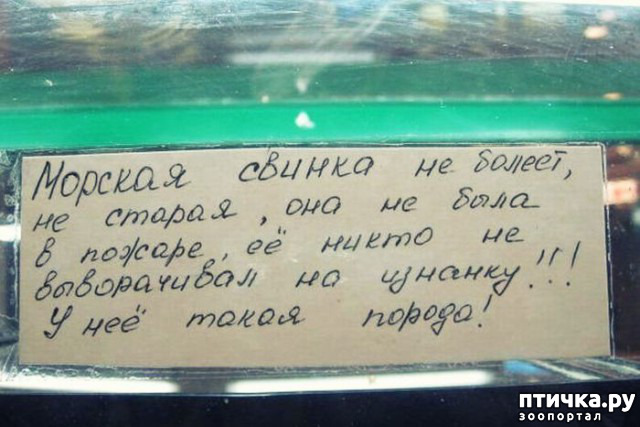 Морская свинка не болеет,
не старая, она не была
в пожаре, её никто не
выворачивал на изнанку!!!
У неё такая порода!
птичка.ру
зоопортал